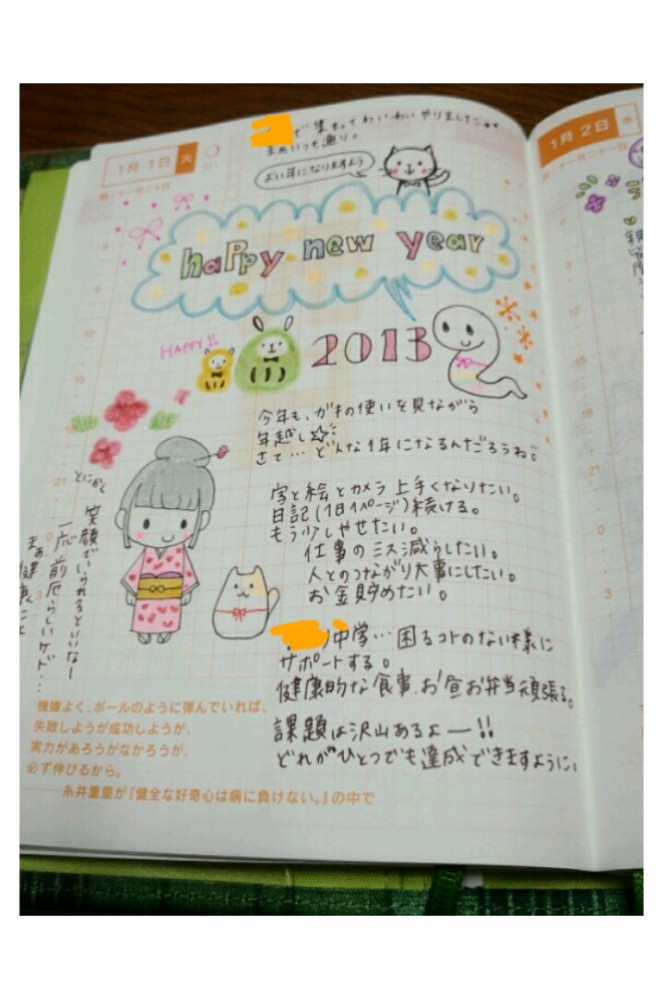 1月1日 火
で集まってわいわいやりました
まぁいつも通り。
よい年になりますよう
happy new year
HAPPY!!
2013
今年も、ガキの使いを見ながら
年越し☆
さて…どんな1年になるんだろうね。
字と絵とカメラ上手くなりたい。
日記(1日1ページ)続ける。
もう少しやせたい。
仕事のミス減らしたい。
人とのつながり大事にしたい。
お金貯めたい。
中学…困るコトのない様に
サポートする。
健康的な食事、お昼お弁当頑張る。
課題は沢山あるよー!!
どれかひとつでも達成できますように。
とにかく
笑顔でいられるといいなー
一応前厄らしいケド…
まぁ健康
機嫌よく、ボールのように弾んでいれば、
失敗しようが成功しようが、
実力があろうがなかろうが、
必ず伸びるから。
——糸井重里が『健全な好奇心は病に負けない。』の中で
6
9
12
15
21
0
3
1月2日 水
9
12
15
18
21
0
3